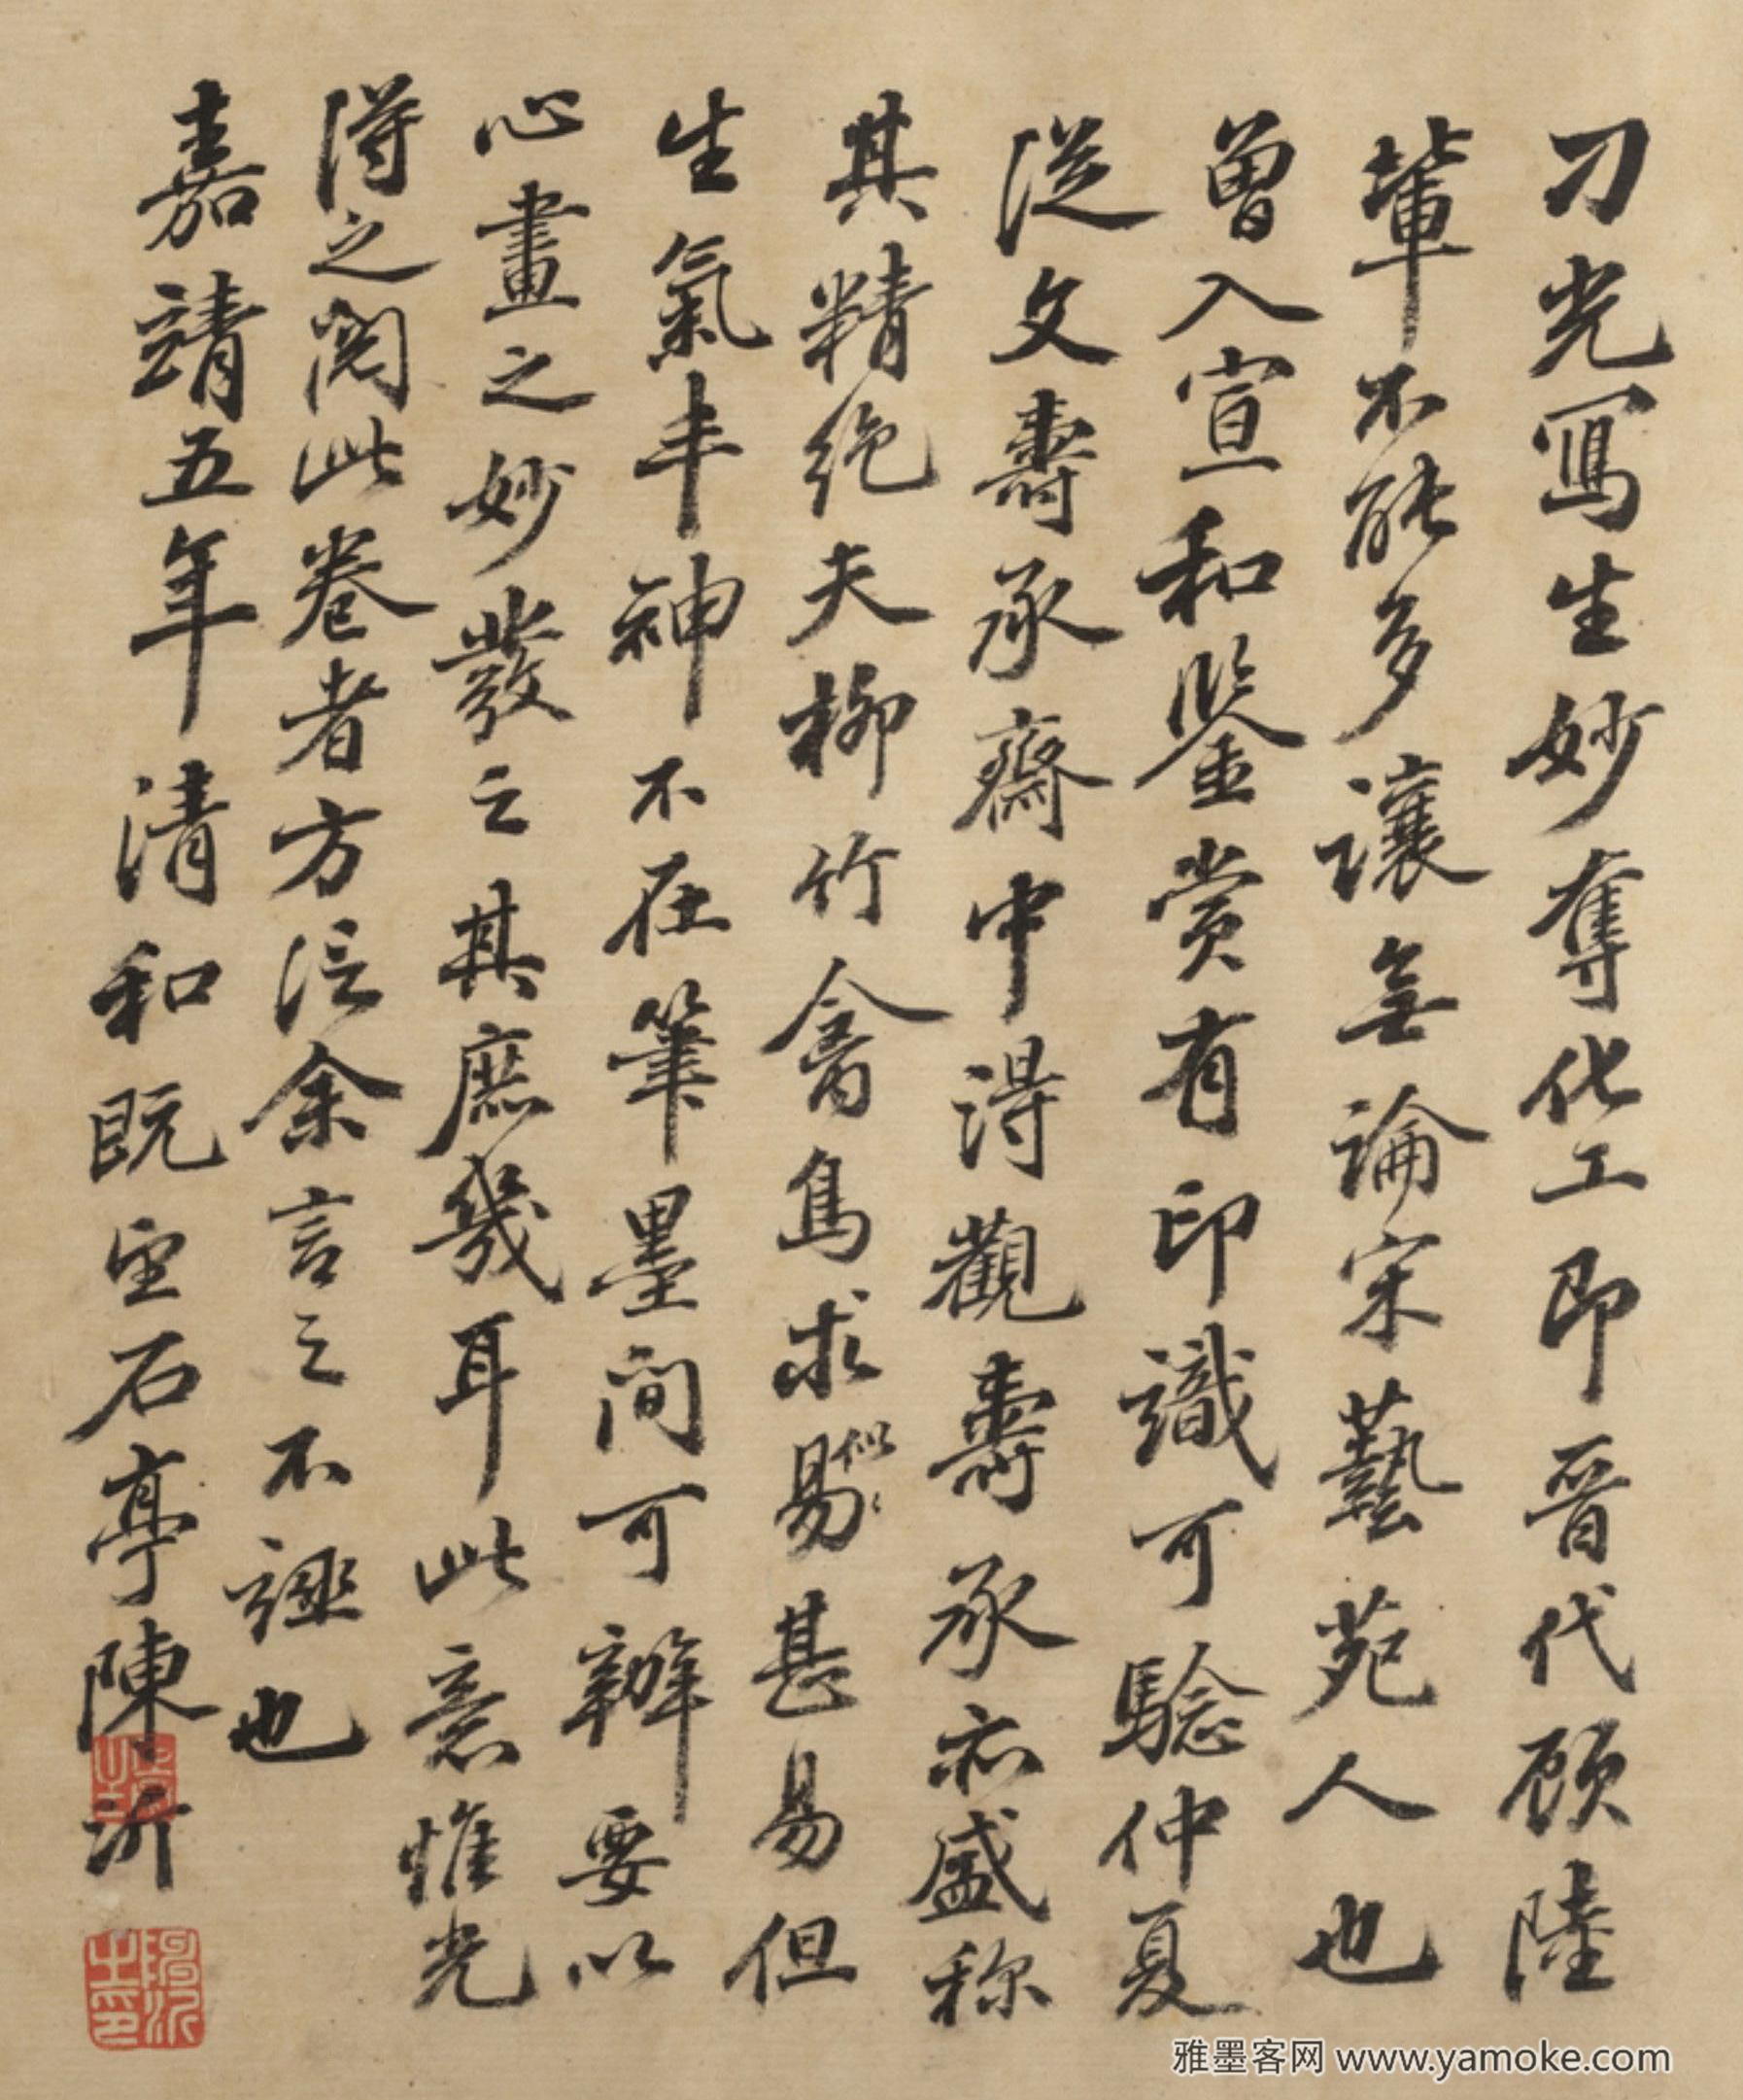 刁光寫生妙奪化工即晉代顧陸
輩不能多讓無論宋藝苑人也
曾入宣和鑒賞有印識可驗仲夏
從文壽承齋中得觀壽承亦盛稱
其精絕夫柳竹禽鳥求易似〻甚易但
生氣丰神不在筆墨間可辨要以
心畫之妙發之其庶幾耳此意惟光
得之閱此卷者方信余言之不誣也
嘉靖五年清和既望石亭陳沂
雅墨客网 www.yamoke.com